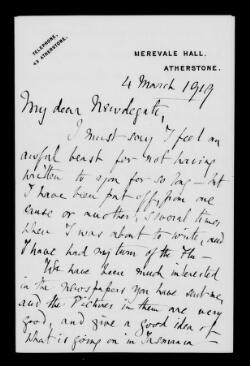 TELEPHONE,
43 ATHERSTONE.
MEREVALE HALL.
ATHERSTONE.
4 March 1919
My dear Newdegate,
I must say I feel an
awful beast for not having
written to you for so long – but
I have been put off, from one
cause or another, several times
when I was about to write, and
I have had my turn of the Flu –
We have been much interested
in the newspapers you have sent me,
and the Pictures in them are very
good, and give a good idea of
what is going on in Tasmania –